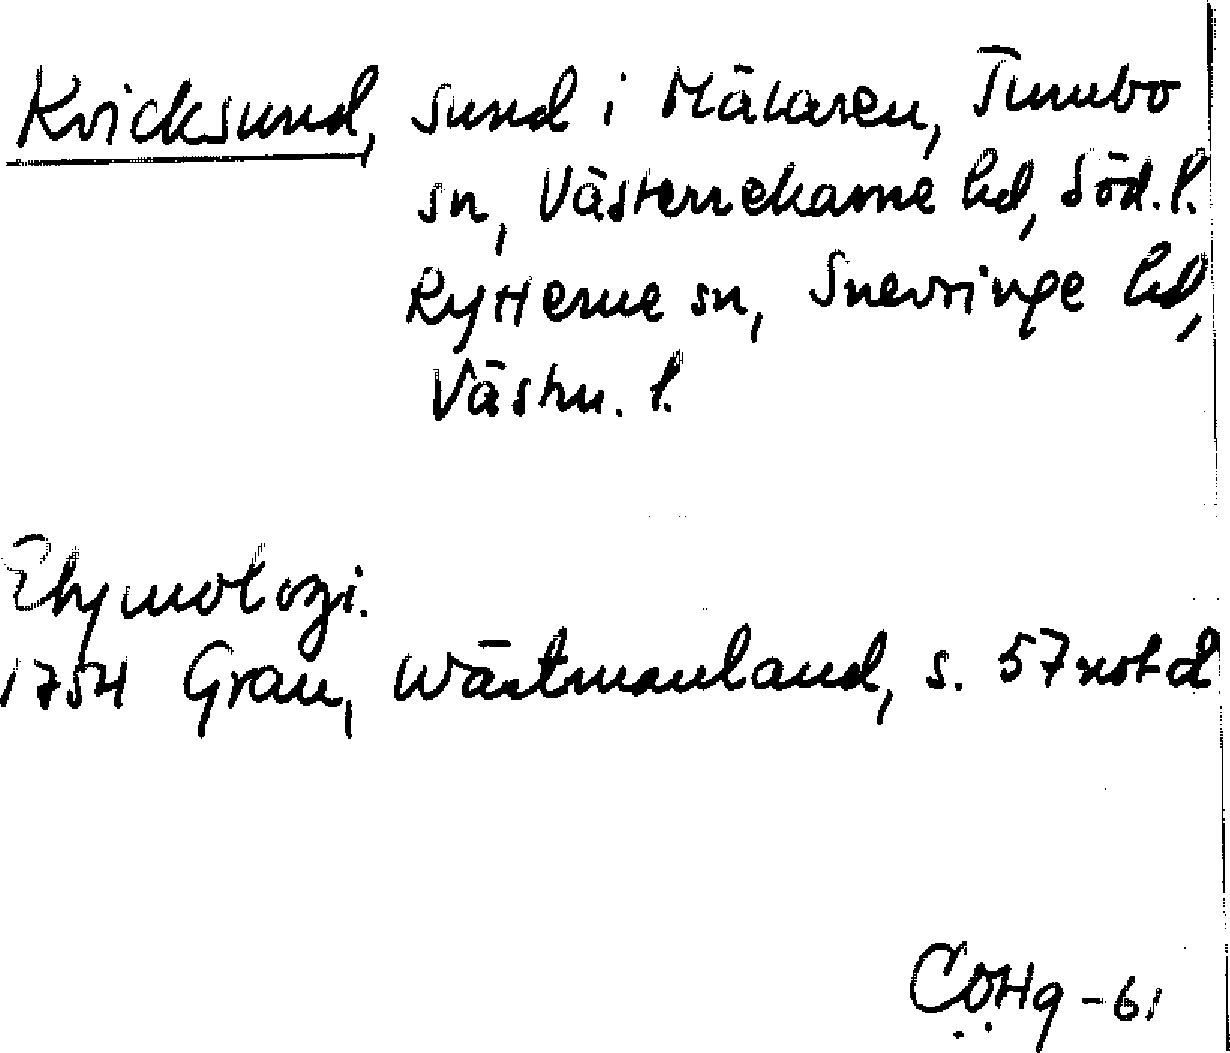 Kvicksund, sund i Mälaren, Tumbo
sn, Västerrekarne hd, Söd. l.
Rytterne sn, Snevringe hd,
Västm. l.
Etymologi.
1754 Grau, Wästmanland, s. 57 not d
CÖHg -61